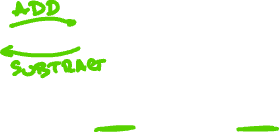 ADD
SUBTRACT